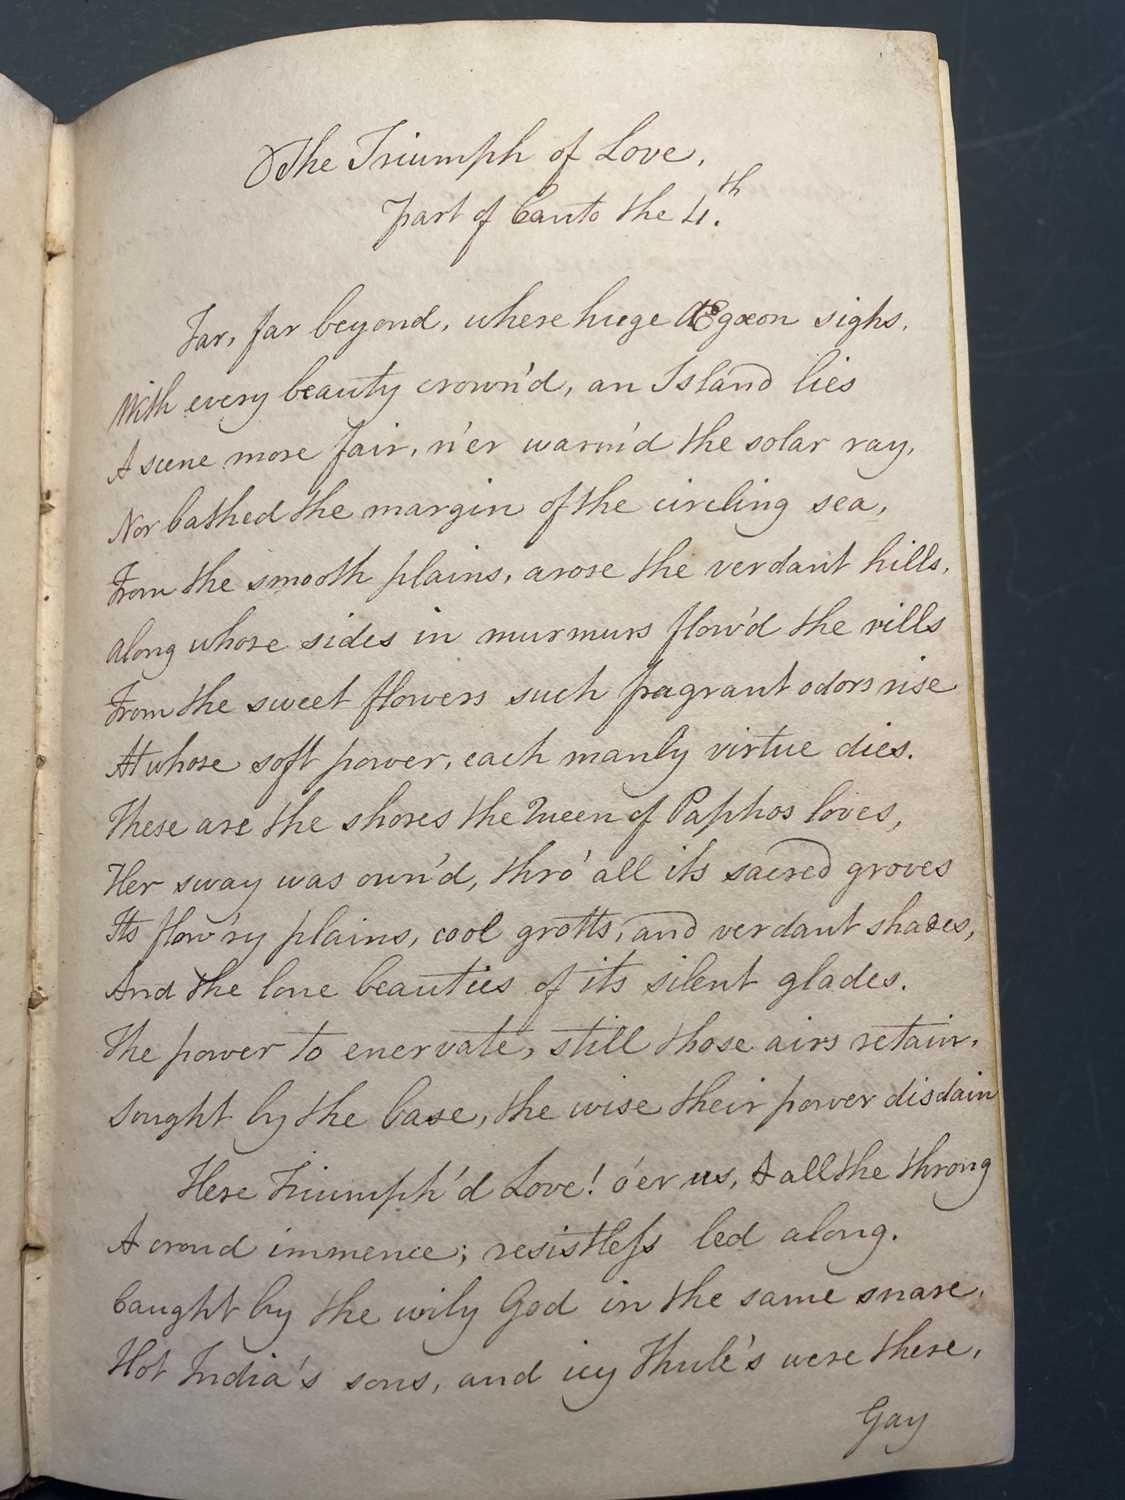 The Triumph of Love,
Part of Canto the 4.th
Far, far beyond, where huge Ægæon sighs,
With every beauty crown'd, an Island lies
A scene more fair, n'er warm'd the solar ray,
Nor bathed the margin of the circling sea,
From the smooth plains, arose the verdant hills,
Along whose sides in murmurs flow'd the rills
From the sweet flowers such fragrant odors rise
At whose soft power, each manly virtue dies.
These are the shores the Queen of Paphos loves,
Her sway was own'd, thro' all its sacred groves
Its flow'ry plains, cool grotts, and verdant shades,
And the lone beauties of its silent glades.
The power to enervate, still those airs retain,
Sought by the base, the wise their power disdain
Here Triumph'd Love! o'er us, & all the throng
A croud immence; resistless led along.
Caught by the wily God in the same snare,
Hot India's sons, and icy Thule's were there,
Gay